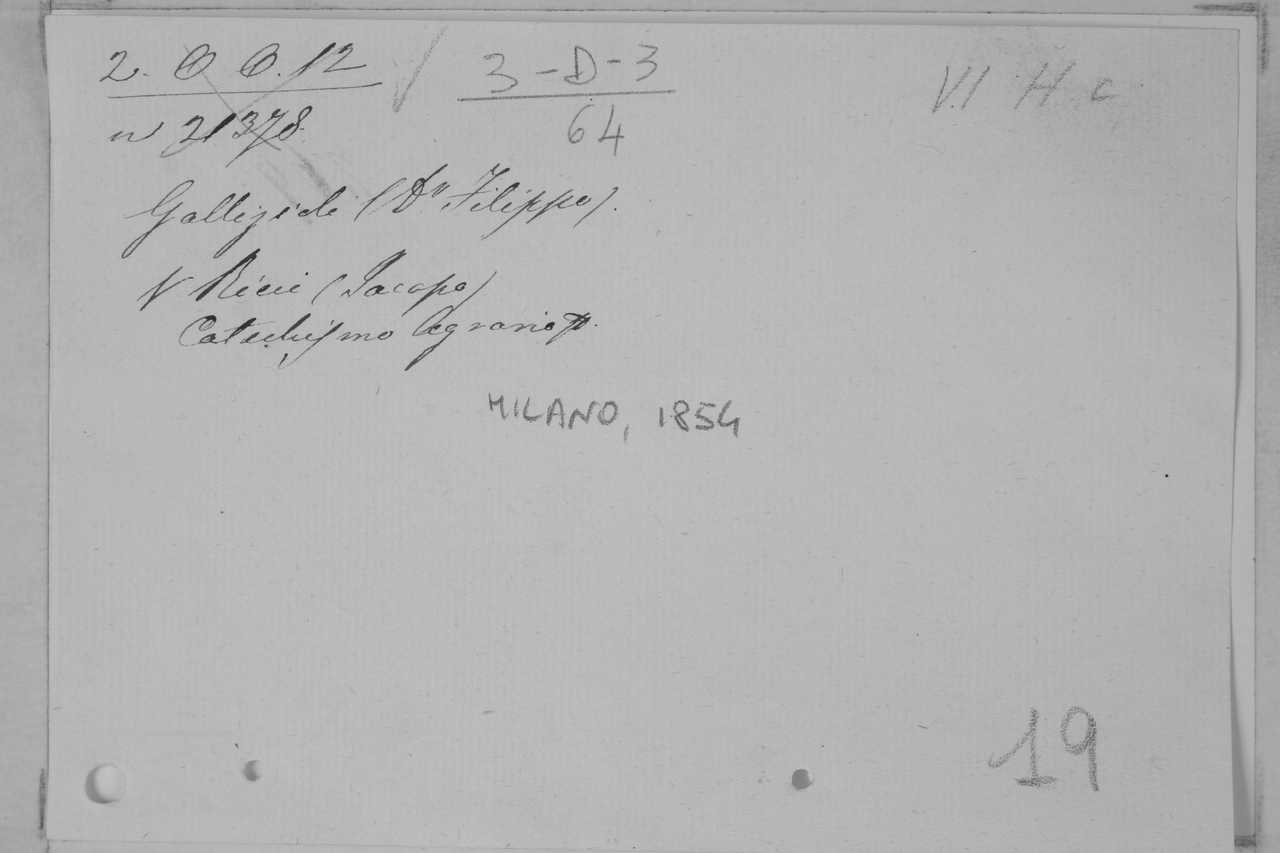 2. O O. 12
3-D-3
VI H c
n 21378.
64
(Dr Filippo).
V Ricci (Jacopo)
Catechismo Agrario
MILANO, 1854
19